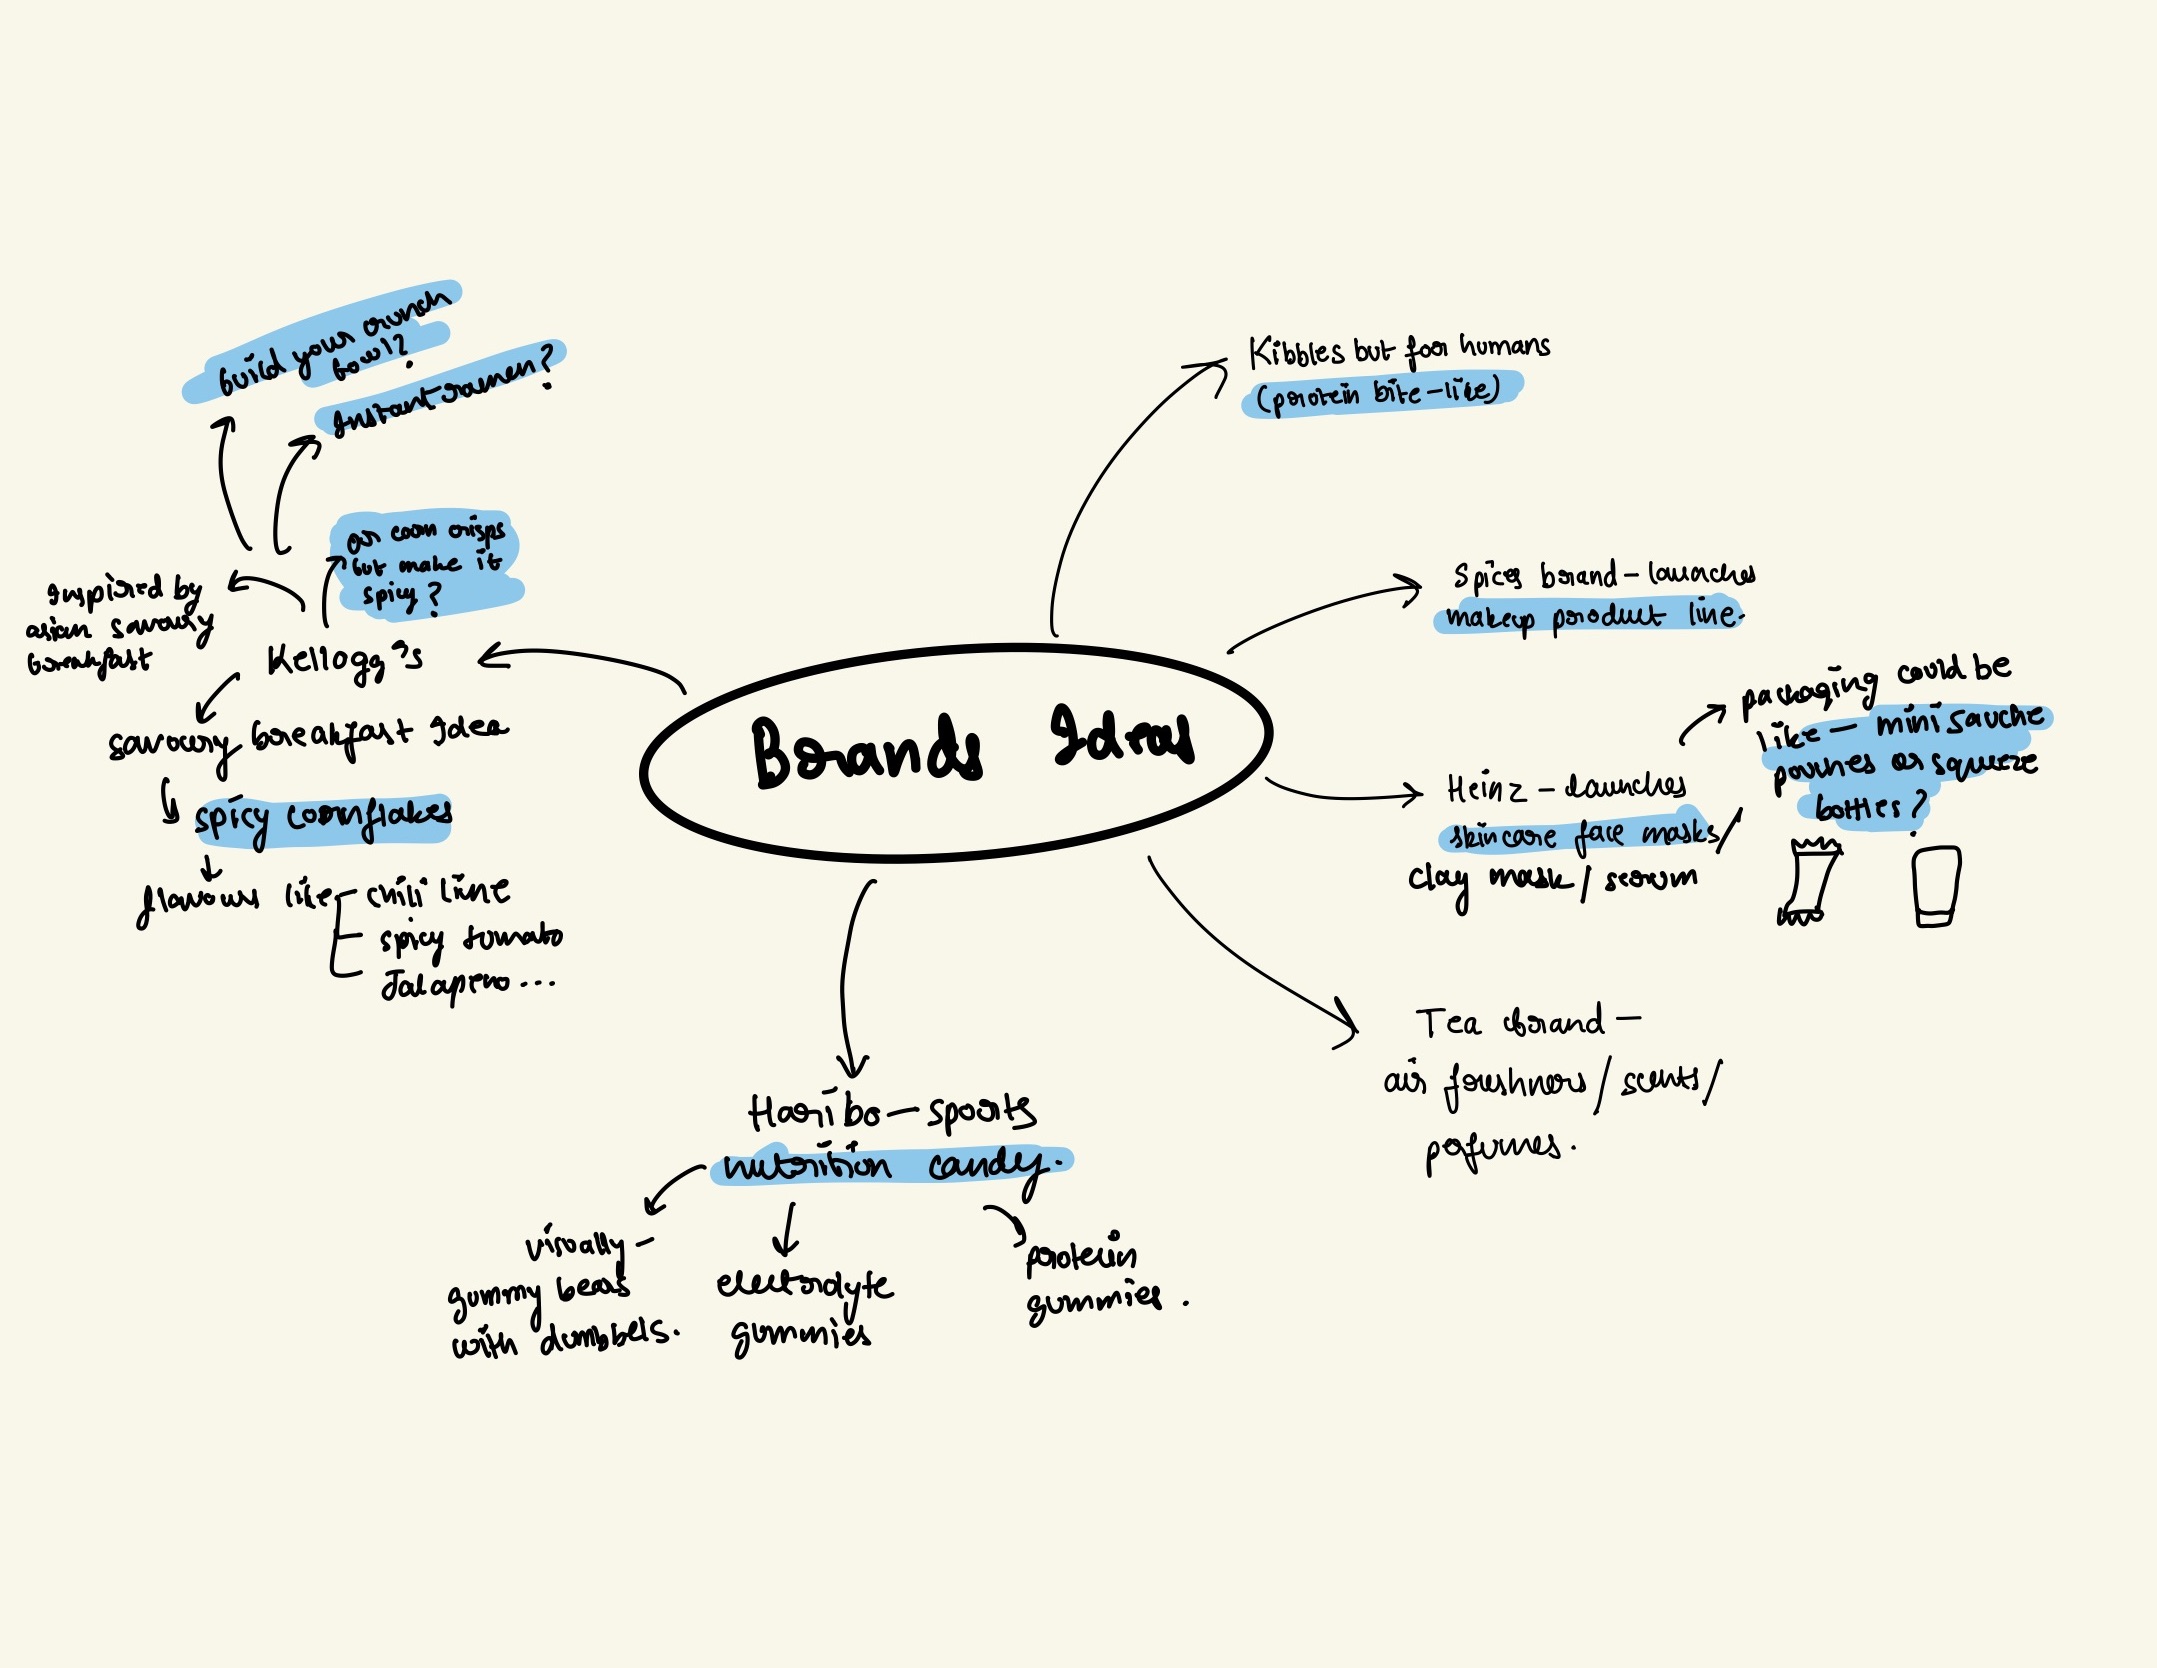 Brands Ideas
Kibbles but for humans
(protein bite-like)
Spices brand - launches
makeup product line.
Heinz - launches
skincare face masks/
clay mask/ serum
packaging could be
like - mini sauche
pouches or squeeze
bottles?
Tea brand -
air freshners/ scents/
pofumes.
Haribo - sports
nutrition candy.
visually -
gummy bears
with dumbbels.
electrolyte
gummies
protein
gummies.
Kellogg's
or corn crisps
but make it
spicy?
Inspired by
asian savoury
breakfast
build your crunch
bowl?
Instant ramen?
savoury breakfast Idea
spicy cornflakes
flavours like - chili lime
spicy tomato
Jalapeno...